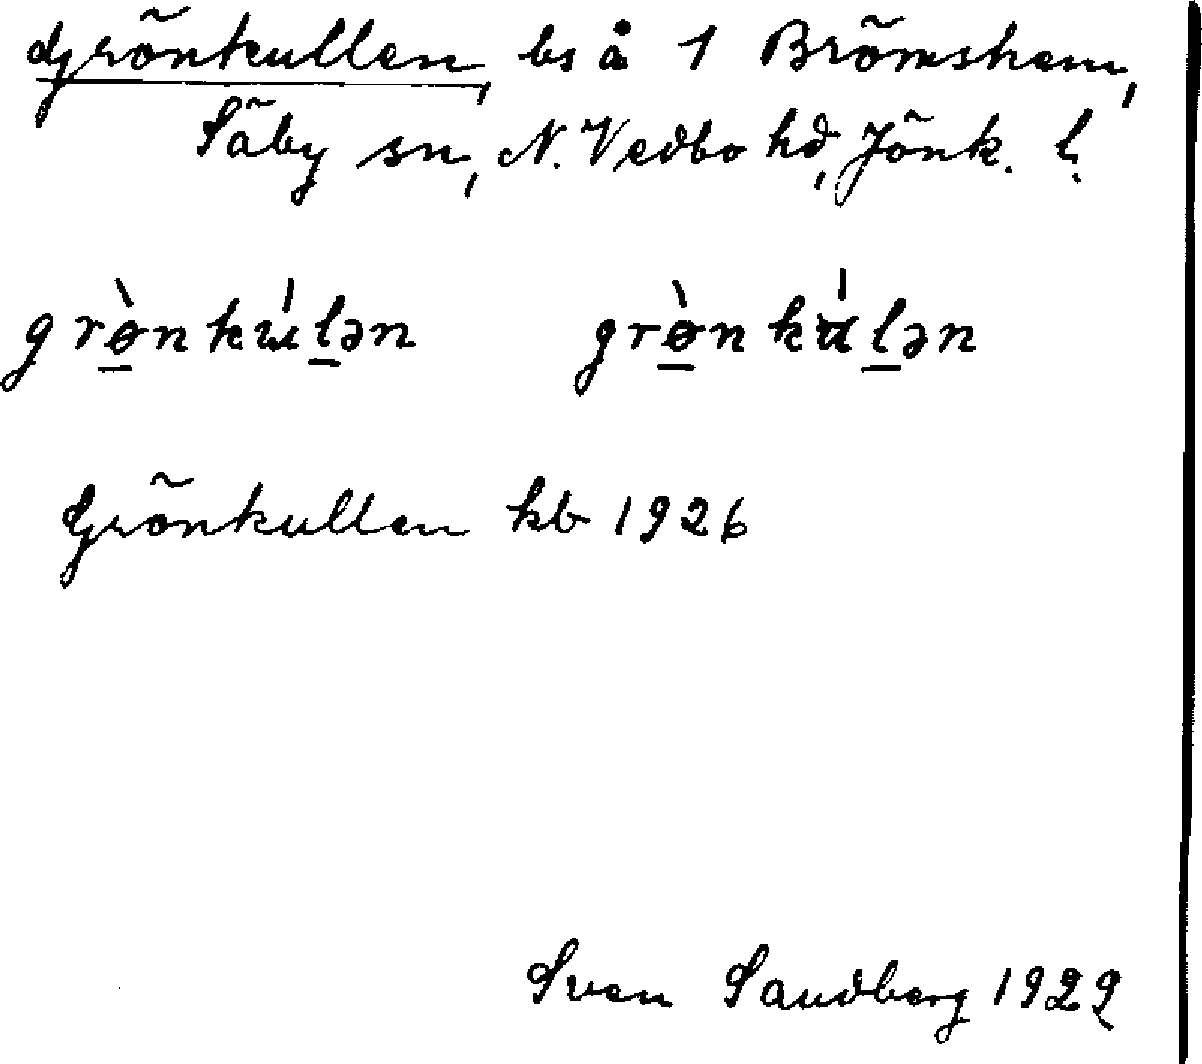 Grönkullen, bs å 1 Brömshem,
Säby sn, N. Vedbo hd, Jönk. l.
grø̀nkúlən grø̀nkúlən
Grönkullen kb 1926
Sven Sandberg 1929